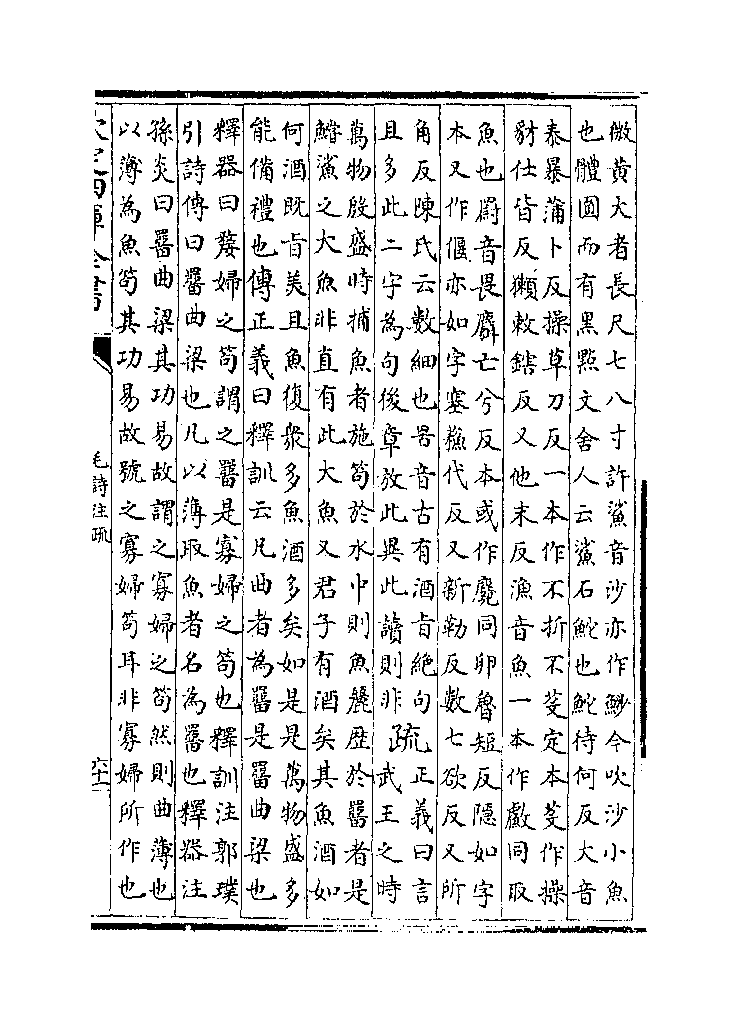 微黃大者長尺七八寸許鯊音沙亦作魦今吹沙小魚
也體圓而有黑點文舍人云鯊石鮀也鮀待何反大音
泰暴蒲卜反操草刀反一本作不折不芟定本芟作操
豺仕皆反獺敕鎋反又他末反漁音魚一本作䱷同取
魚也罻音畏麛亡兮反本或作麑同卵魯短反隱如字
本又作偃亦如字塞蘓代反又新勒反數七欲反又所
角反陳氏云數細也罟音古有酒㫖絶句
且多此二字為句後章放此異此讀則非
疏正義曰言武王之時
萬物殷盛時捕魚者施笱於水中則魚麗歴於罶者是
鱨鯊之大魚非直有此大魚又君子有酒矣其魚酒如
何酒既㫖美且魚復衆多魚酒多矣如是是萬物盛多
能備禮也傳正義曰釋訓云凡曲者為罶是罶曲梁也
釋器曰嫠婦之笱謂之罶是寡婦之笱也釋訓注郭璞
引詩傳曰罶曲梁也凡以薄取魚者名為罶也釋器注
孫炎曰罶曲梁其功易故謂之寡婦之笱然則曲薄也
以薄為魚笱其功易故號之寡婦笱耳非寡婦所作也
欽定四庫全書
毛詩注疏